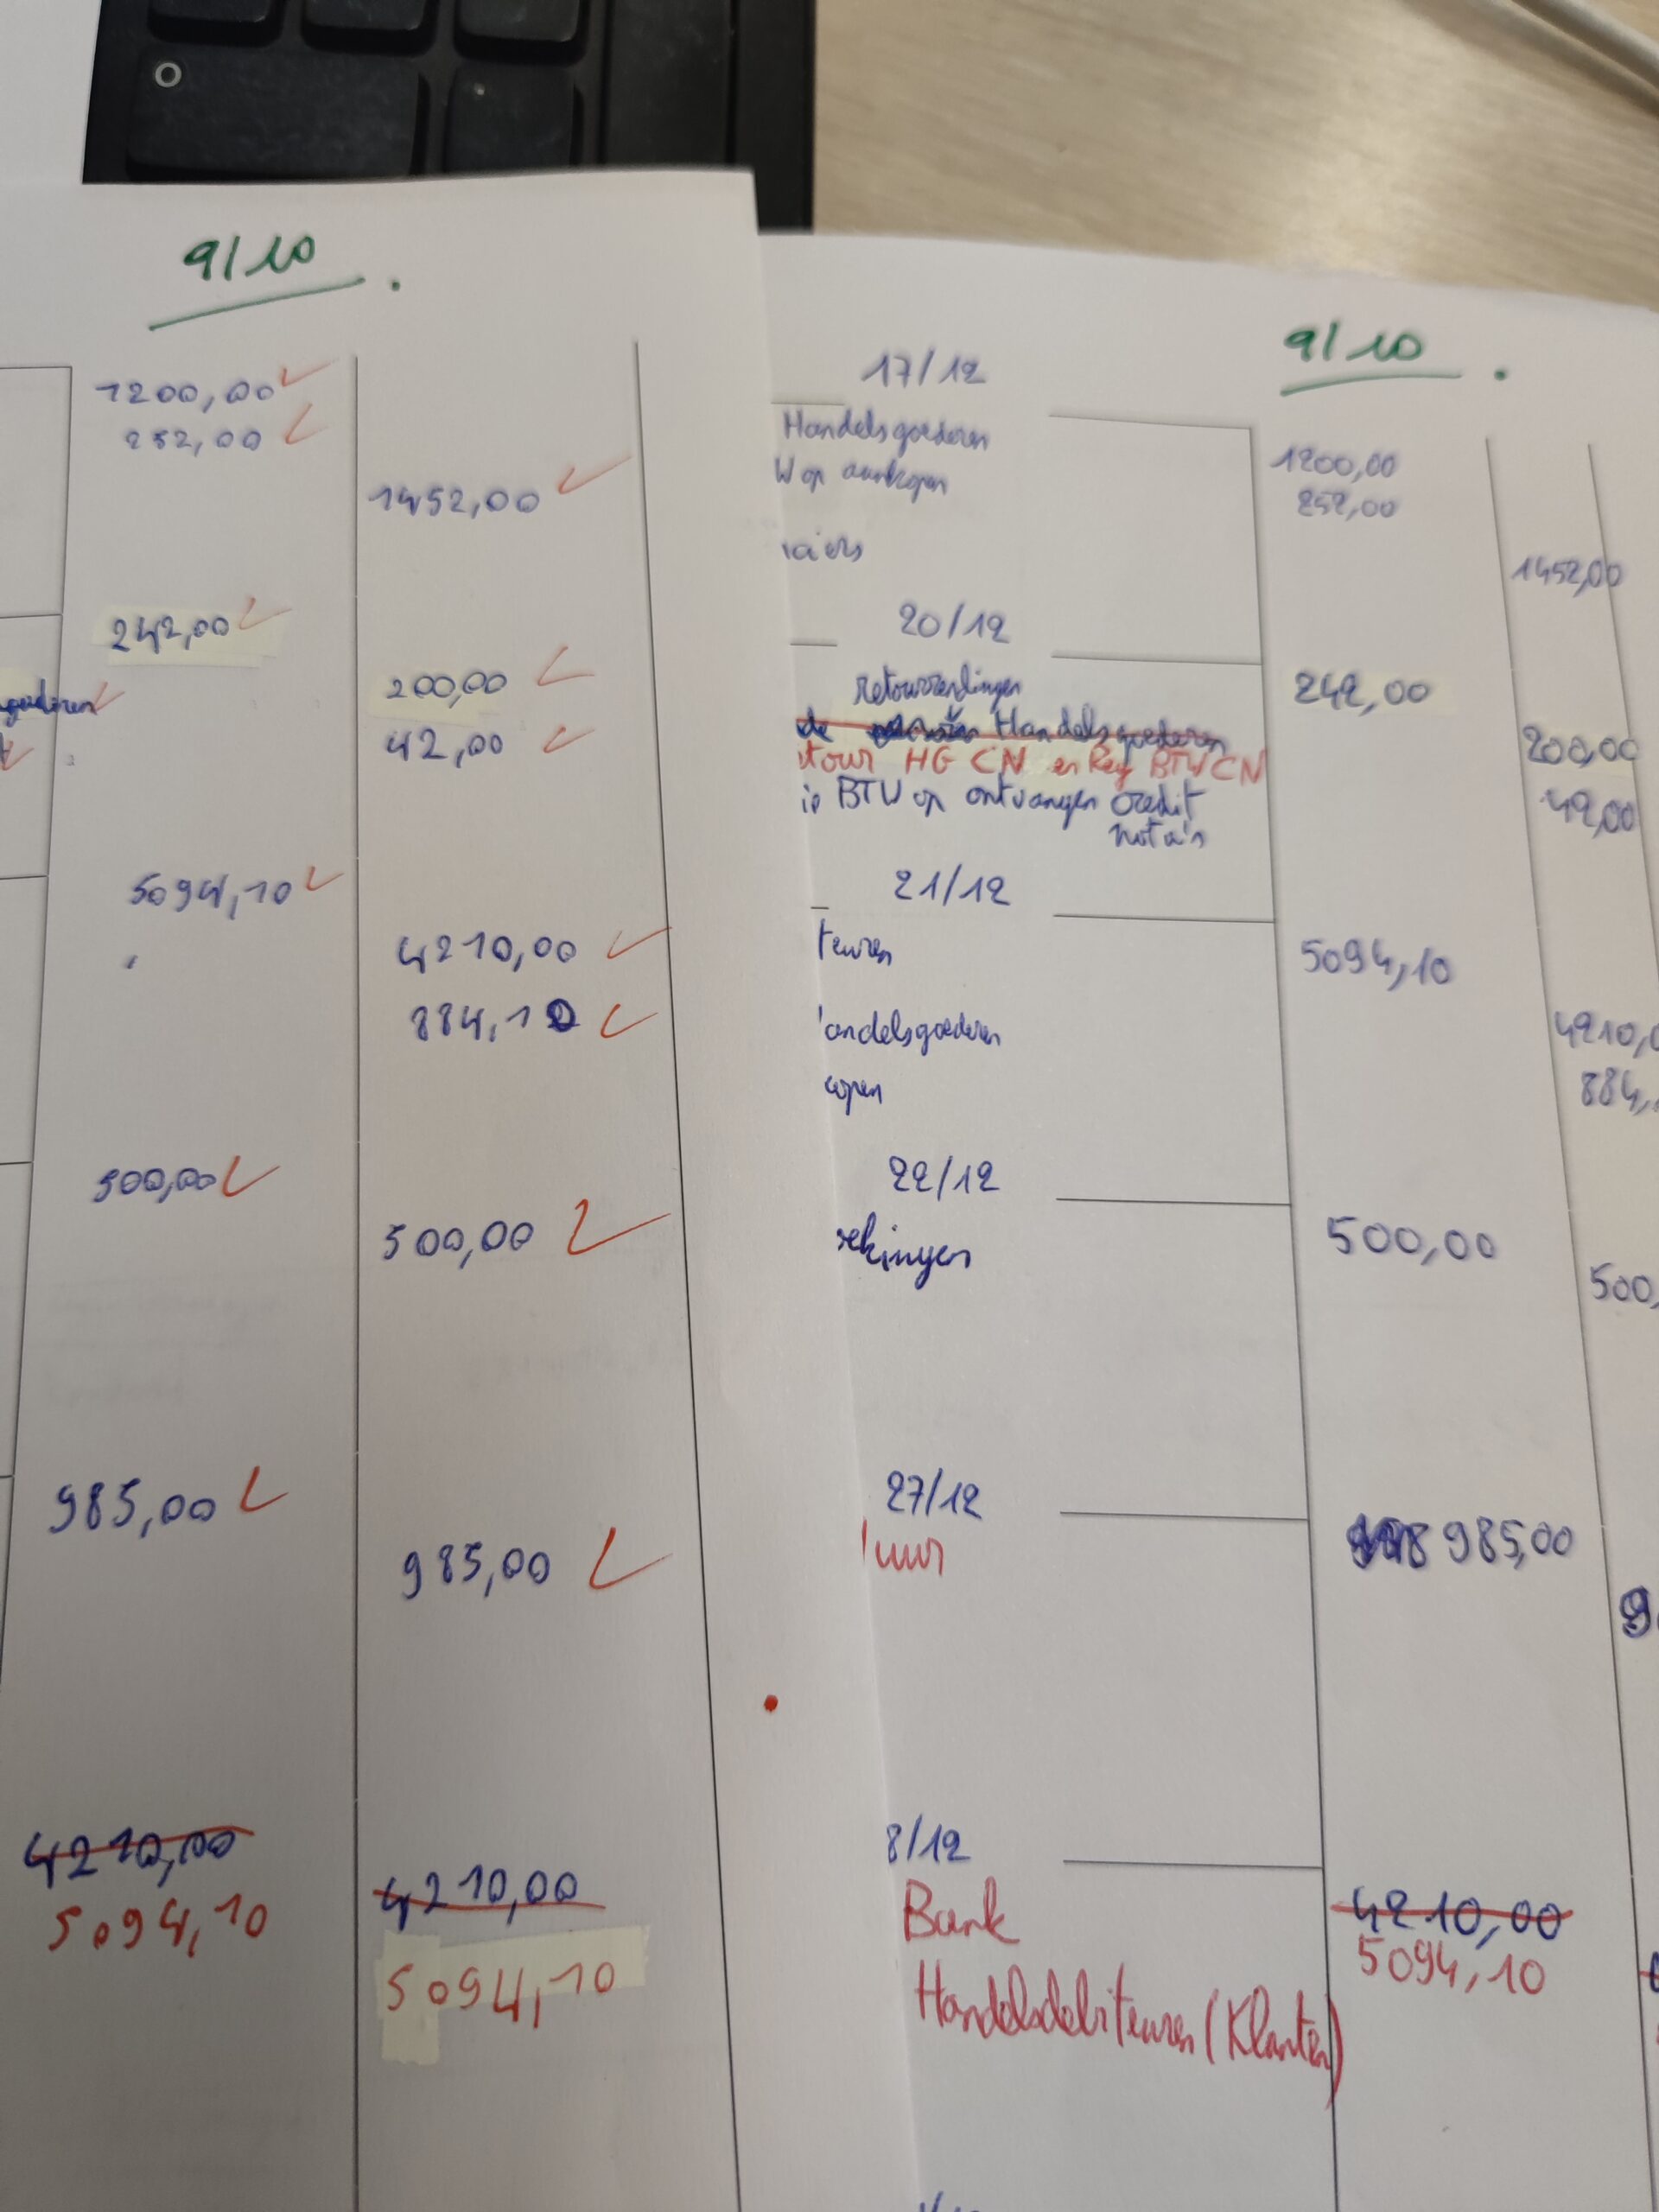 9/10.
1200,00
252,00
1452,00
242,00
200,00
goederen
42,00
5094,10
4210,00
884,10
500,00
500,00
985,00
985,00
4210,00
5094,10
4210,00
5094,10
9/10.
17/12
Handelsgoederen
1200,00
W op aankopen
252,00
iers
1452,00
20/12
retourzendingen
242,00
de Handelsgoederen
200,00
tour HG CN en Reg BTW CN
BTW op ontvangen credit
42,00
nota's
21/12
teuren
5094,10
andelsgoederen
4210,0
open
884,
22/12
500,00
rekingen
500,
27/12
985,00
uur
9
8/12
4210,00
Bank
5094,10
Handelsdebiteuren (Klanten)